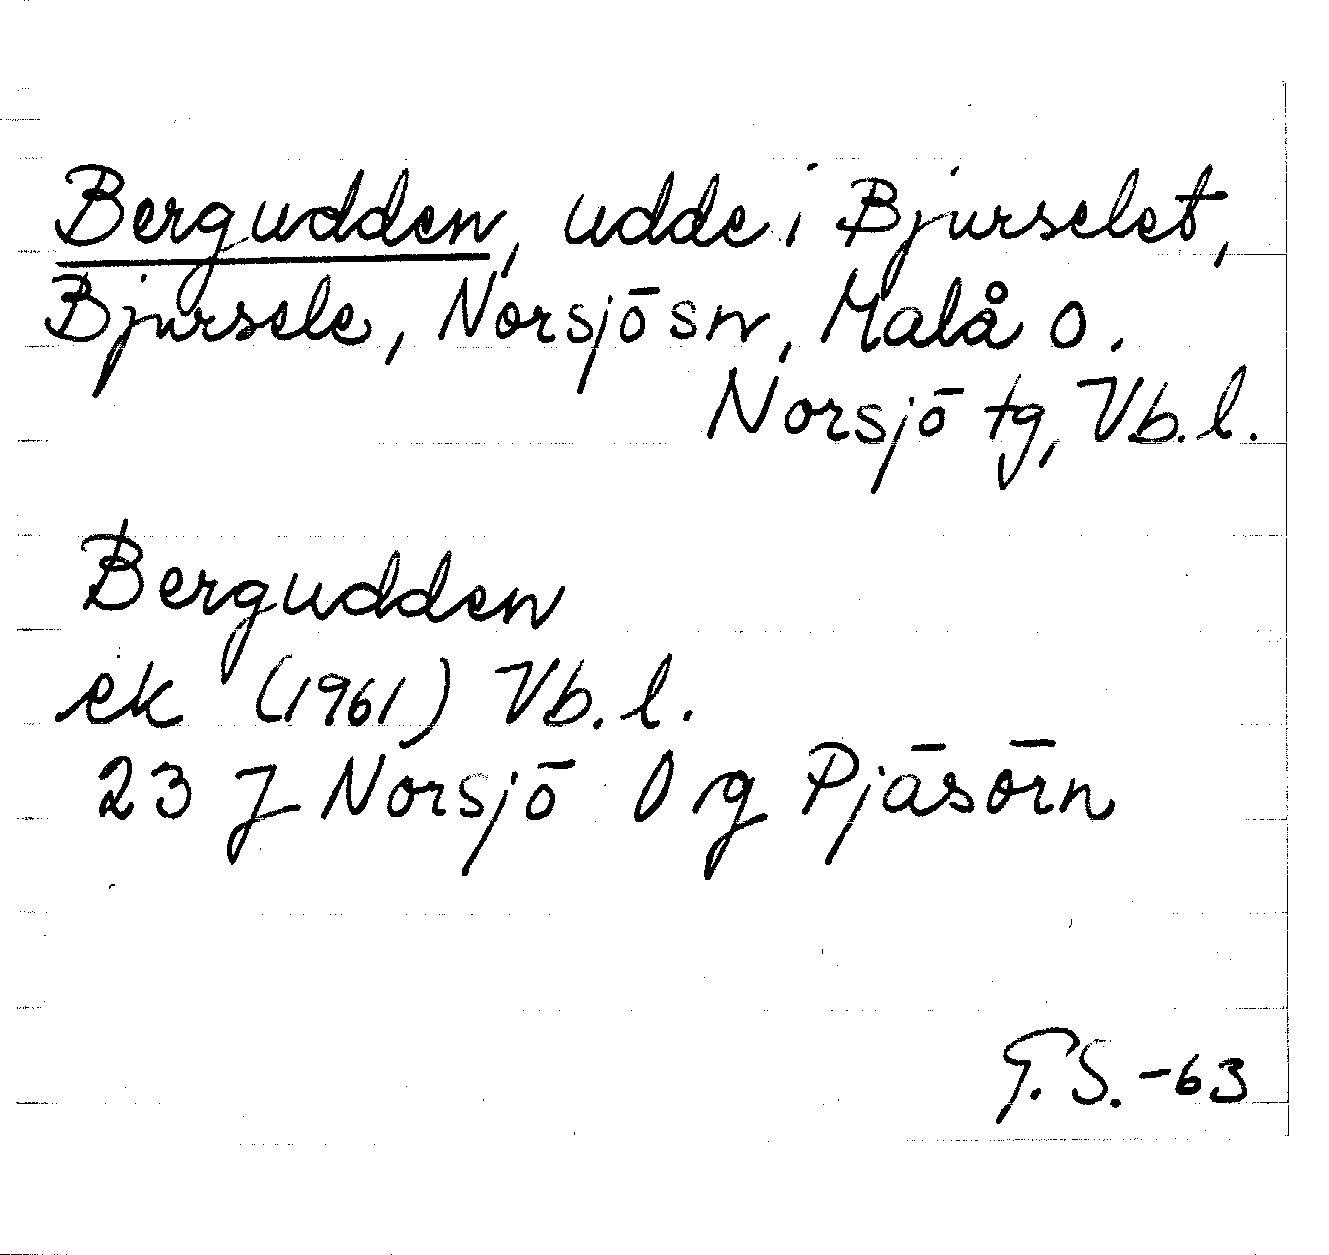 Bergudden, udde i Bjurselet,
Bjursele, Norsjö sn, Malå o.
Norsjö tg, Vb. l.
Bergudden
ek (1961) Vb. l.
23 J Norsjö 0 g Pjäsörn
G.S. -63